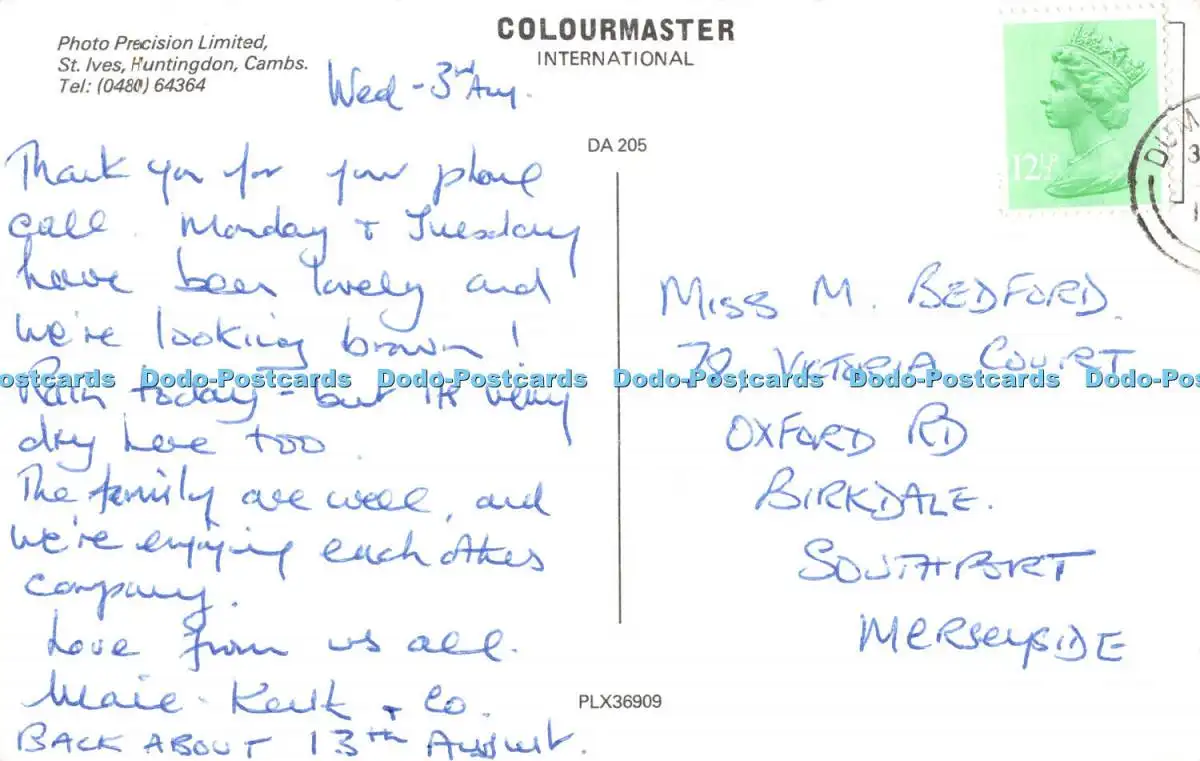 Photo Precision Limited,
St. Ives, Huntingdon, Cambs.
Tel: (0480) 64364
COLOURMASTER
INTERNATIONAL
DA 205
12½P
DUM
Wed - 3rd Aug.
Thank you for your phone
call. Monday & Tuesday
have been lovely and
we're looking brown!
Rain today - but it's very
dry here too.
The family are well, and
we're enjoying each others
company.
Love from us all.
+ Co.
BACK ABOUT 13th August.
MISS M. BEDFORD.
70 VICTORIA COURT
OXFORD RD
BIRKDALE.
SOUTHPORT
MERSEYSIDE
PLX36909
Dodo-Postcards Dodo-Postcards Dodo-Postcards Dodo-Postcards